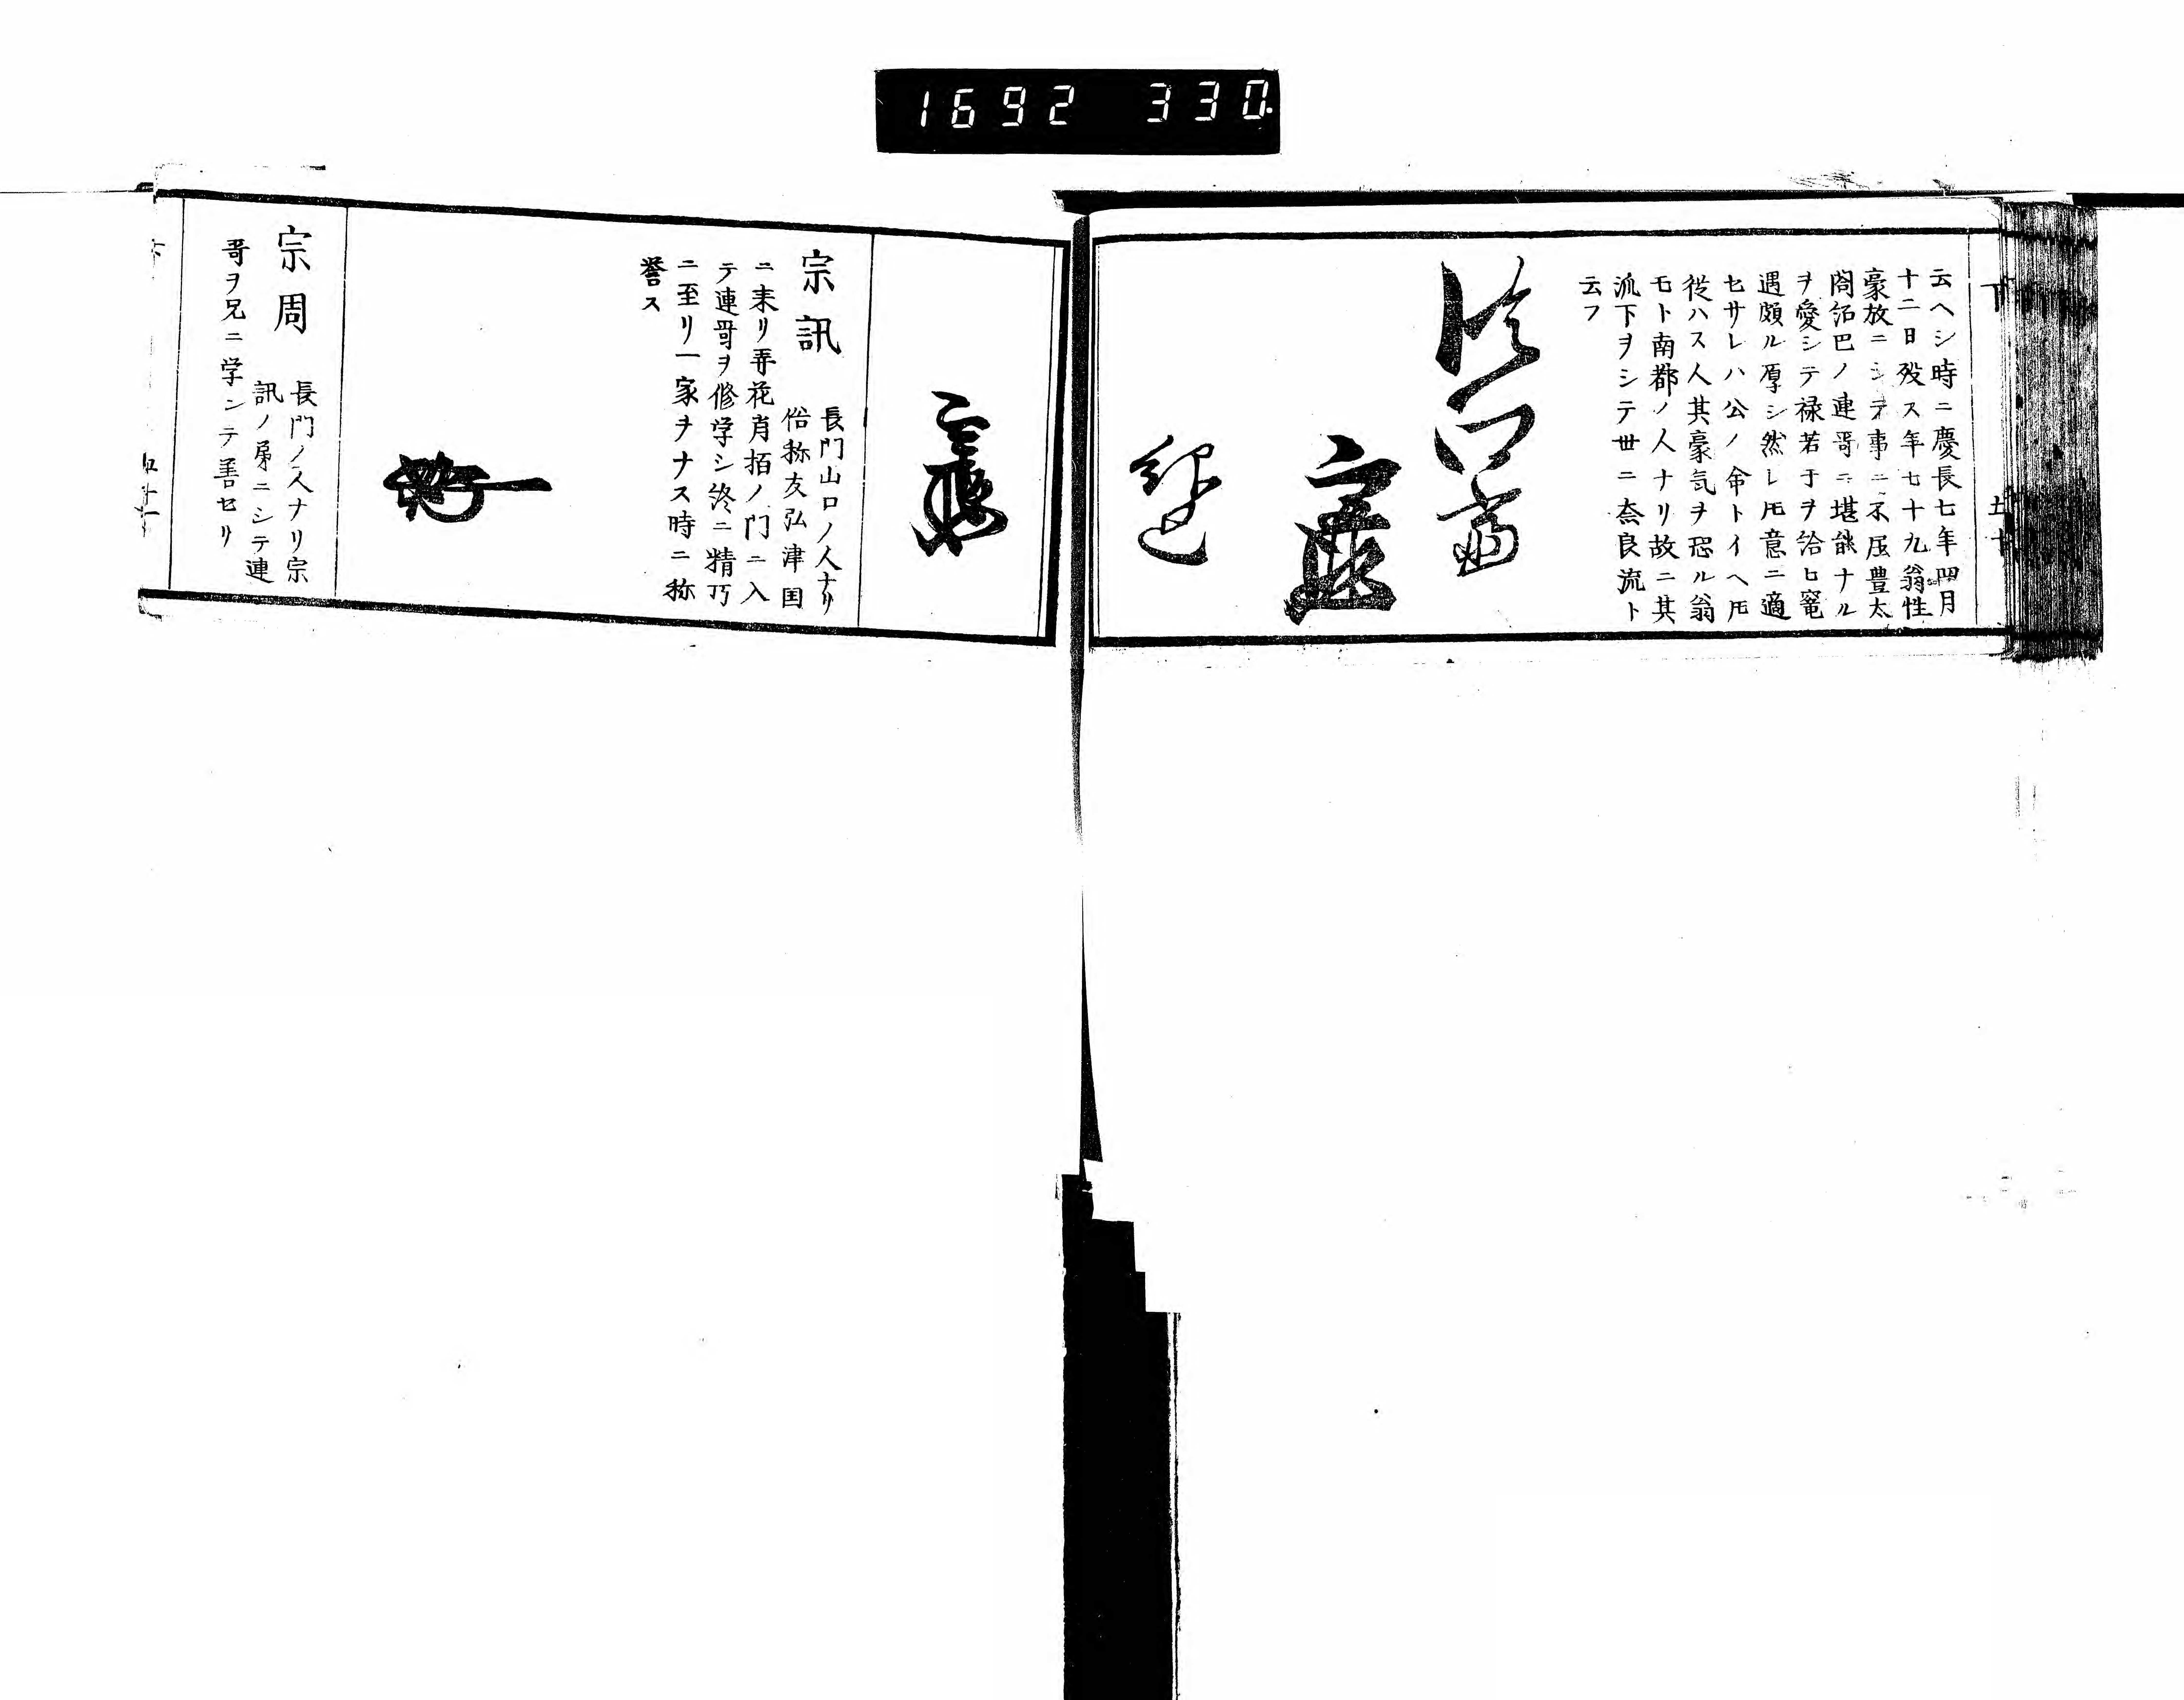 1692 330
下
云ヘシ時ニ慶長七年四月
十二日歿ス年七十九翁性
豪放ニシテ事ニ不屈豊太
閤紹巴ノ連哥ニ堪能ナル
ヲ愛シテ禄若于ヲ給ヒ寵
遇頗ル厚シ然レ𪜈意ニ適
セサレハ公ノ命トイヘ𪜈
従ハス人其豪気ヲ恐ル翁
モト南都ノ人ナリ故ニ其
流下ヲシテ世ニ奈良流ト
云フ
紹巴
宗訊
長門山口ノ人ナリ
俗称友弘津国
ニ来リ弄花肖栢ノ門ニ入
テ連哥ヲ修学シ終ニ精巧
ニ至リ一家ヲナス時ニ称
誉ス
宗周
長門ノ人ナリ宗
訊ノ弟ニシテ連
哥ヲ兄ニ学ンテ善セリ